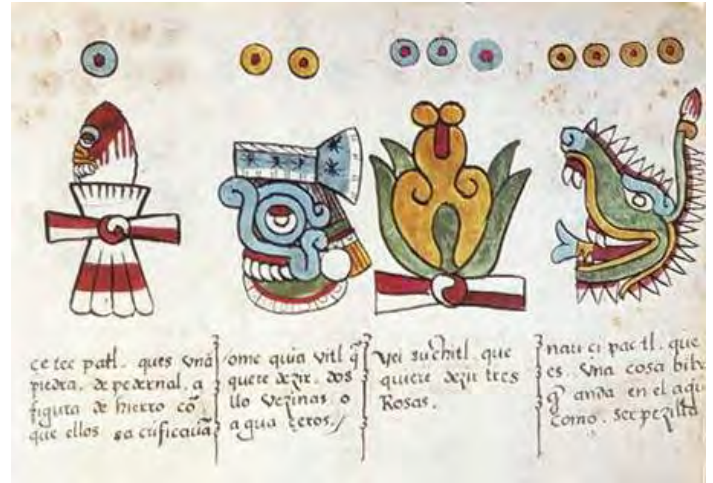 ce tec patl. ques vnā
piedra. de pedernal. a
figura de hierro cō
que ellos sacrificauā
ome quia vitl q̄
quere dezir. dos
llo vezinas o
agua çeros./
yei suchitl. que
quiere dezir tres
Rosas.
naui ci pac tl. que
es. vna cosa
q̄ anda en el
como. serpezilla